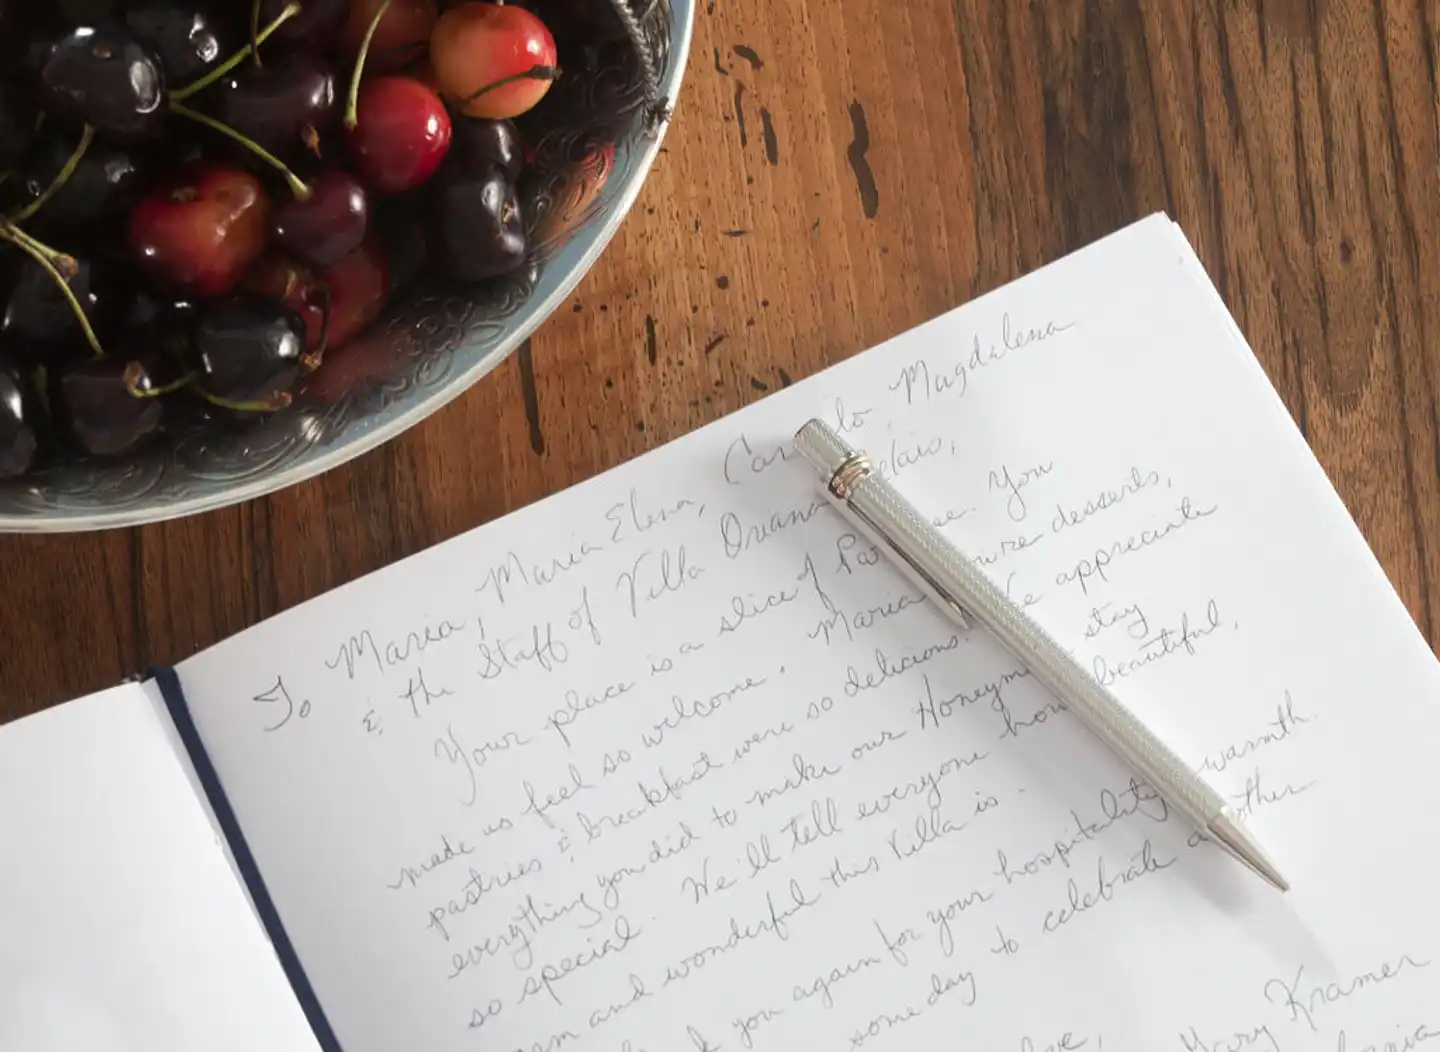 To Maria, Maria Elena, Magdalena
& the Staff of Villa
Your place is a slice of You
made us feel so welcome. Maria desserts,
pastries & breakfast were so delicious. appreciate
everything you did to make our stay
so special. We'll tell everyone how beautiful,
and wonderful this Villa is.
you again for your hospitality warmth.
some day to celebrate
Mary Kramer